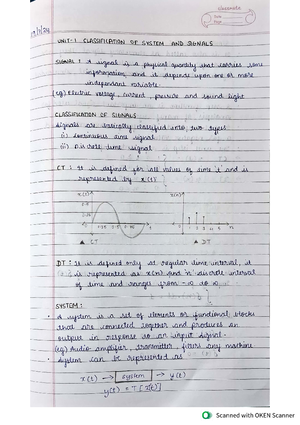 classmate
Date
Page
UNIT-1 CLASSIFICATION OF SYSTEM AND SIGNALS
SIGNAL : A signal is a physical quantity that carries some
information and is depends upon one or more
independent variable.
(eg) electric voltage, current, pressure and sound light
CLASSIFICATION OF SIGNALS
Signals are basically classified into two types
(i) continuous time signal
(ii) Discrete time signal
CT : It is defined for all values of time 't' and is
represented by x(t)
x(t)
x(n)
▲ CT
▲ DT
DT : It is defined only at regular time interval, it
is represented as x(n) and 'n' discrete interval
of time and ranges from -∞ to ∞
SYSTEM :
• A system is a set of elements or functional blocks
that are connected together and produces an
output in response to an input signal.
(eg) Audio amplifier, transmitter, any machine
• System can be represented as
x(t) → system → y(t)
y(t) = T[x(t)]
Scanned with OKEN Scanner